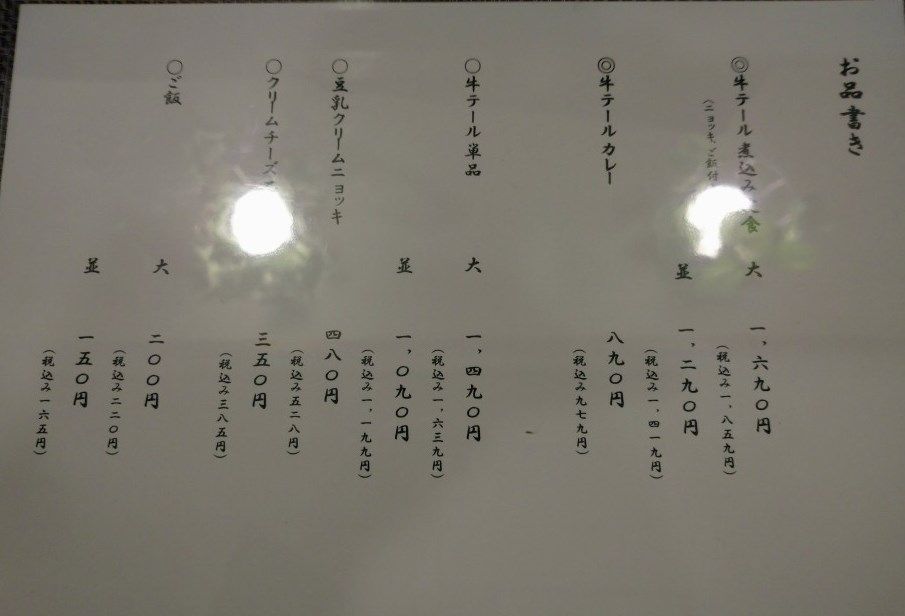 お品書き
◎牛テール煮込み 食 大 一,六九〇円
(税込み一,八五九円)
(ニョッキ、ご飯付 並 一,二九〇円
(税込み一,四一九円)
◎牛テールカレー 八九〇円
(税込み九七九円)
〇牛テール単品 大 一,四九〇円
(税込み一,六三九円)
並 一,〇九〇円
(税込み一,一九九円)
〇豆乳クリームニョッキ 四八〇円
(税込み五二八円)
〇クリームチーズ 三五〇円
(税込み三八五円)
〇ご飯 大 二〇〇円
(税込み二二〇円)
並 一五〇円
(税込み一六五円)